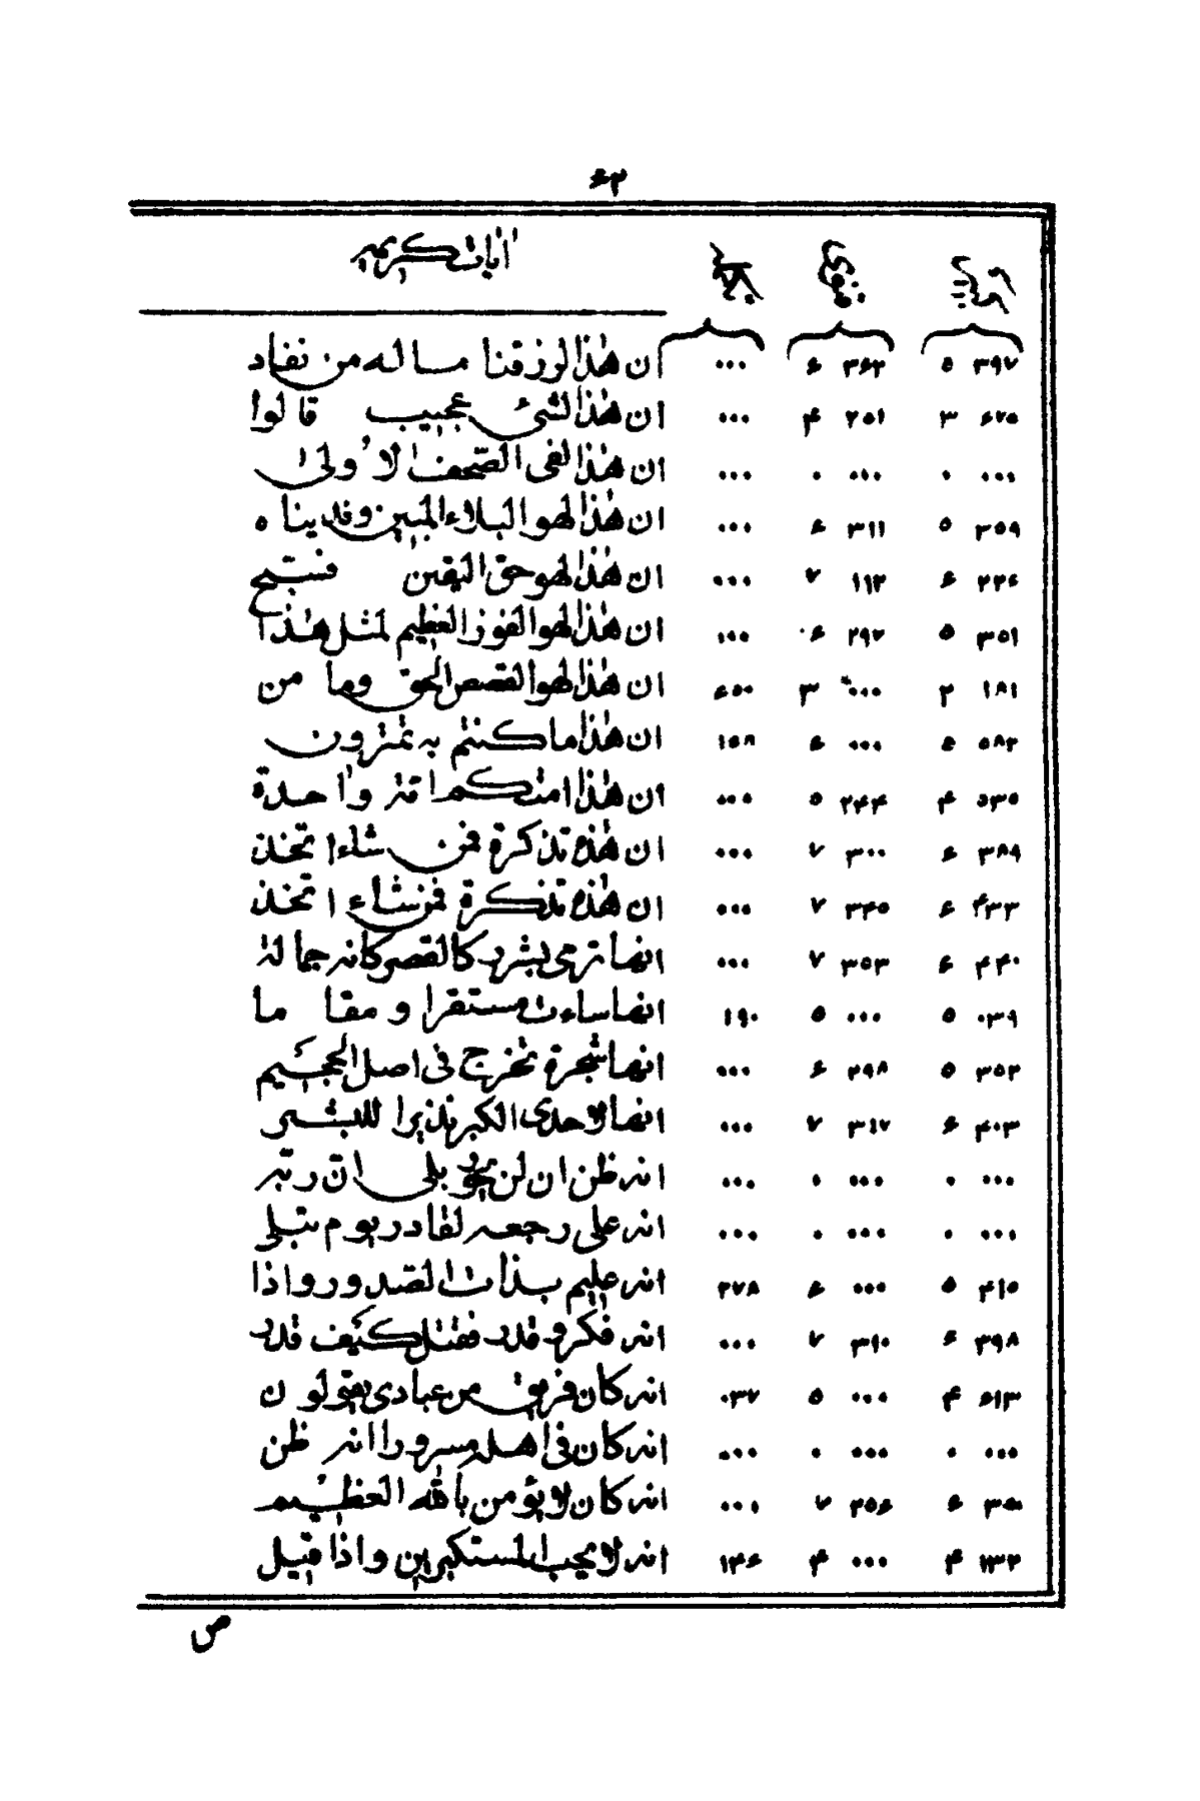 ۶۳
اٰیات کریمه
۳۹۷ ۵ ۳۶۲ ۶ ۰۰۰ ان هٰذا لرزقنا ماله من نفاد
۶۲۵ ۳ ۲۵۱ ۴ ۰۰۰ ان هٰذا لشئ عجیب قالوا
۰۰۰ ۰ ۰۰۰ ۰ ۰۰۰ ان هٰذا لفی الصحف الاولیٰ
۳۵۹ ۵ ۳۱۱ ۶ ۰۰۰ ان هٰذا لهو البلاء المبین وفدیناه
۲۲۶ ۶ ۱۱۲ ۷ ۰۰۰ ان هٰذا لهو حق الیقین فسبح
۳۵۱ ۵ ۲۹۷ ۶ ۰۰۰ ان هٰذا لهو الفوز العظیم لمثل هٰذا
۱۸۱ ۲ ۰۰۰ ۳ ۶۵۰ ان هٰذا لهو القصص الحق وما من
۵۸۲ ۵ ۰۰۰ ۶ ۱۵۸ ان هٰذا ما کنتم به تمترون
۵۳۵ ۴ ۲۴۴ ۵ ۰۰۰ ان هٰذا امتکم امة واحدة
۳۸۹ ۶ ۳۰۰ ۷ ۰۰۰ ان هٰذه تذکرة فمن شاء اتخذ
۴۳۳ ۶ ۳۴۵ ۷ ۰۰۰ ان هٰذه تذکرة فمن شاء اتخذ
۴۴۰ ۶ ۳۵۳ ۷ ۰۰۰ انها ترمی بشرر کالقصر کانه جمالة
۰۳۹ ۵ ۰۰۰ ۵ ۱۹۰ انها ساءت مستقرا و مقاما
۳۵۲ ۵ ۲۹۸ ۶ ۰۰۰ انها شجرة تخرج فی اصل الجحیم
۴۰۳ ۶ ۳۱۷ ۷ ۰۰۰ انها لاحدی الکبر نذیرا للبشر
۰۰۰ ۰ ۰۰۰ ۰ ۰۰۰ انه ظن ان لن یحور بلی ان ربه
۰۰۰ ۰ ۰۰۰ ۰ ۰۰۰ انه علی رجعه لقادر یوم تبلی
۴۱۵ ۵ ۰۰۰ ۶ ۲۷۸ انه علیم بذات الصدور واذا
۳۹۸ ۶ ۳۱۰ ۷ ۰۰۰ انه فکر و قدر فقتل کیف قدر
۶۱۳ ۴ ۰۰۰ ۵ ۰۳۷ انه کان فریق من عبادی یقولون
۰۰۰ ۰ ۰۰۰ ۰ ۰۰۰ انه کان فی اهله مسرورا انه ظن
۶ ۲۵۶ ۷ ۰۰۰ انه کان لا یؤمن بالله العظیم
۱۳۲ ۴ ۰۰۰ ۴ ۱۴۶ انه لا یحب المستکبرین واذا قیل
ص